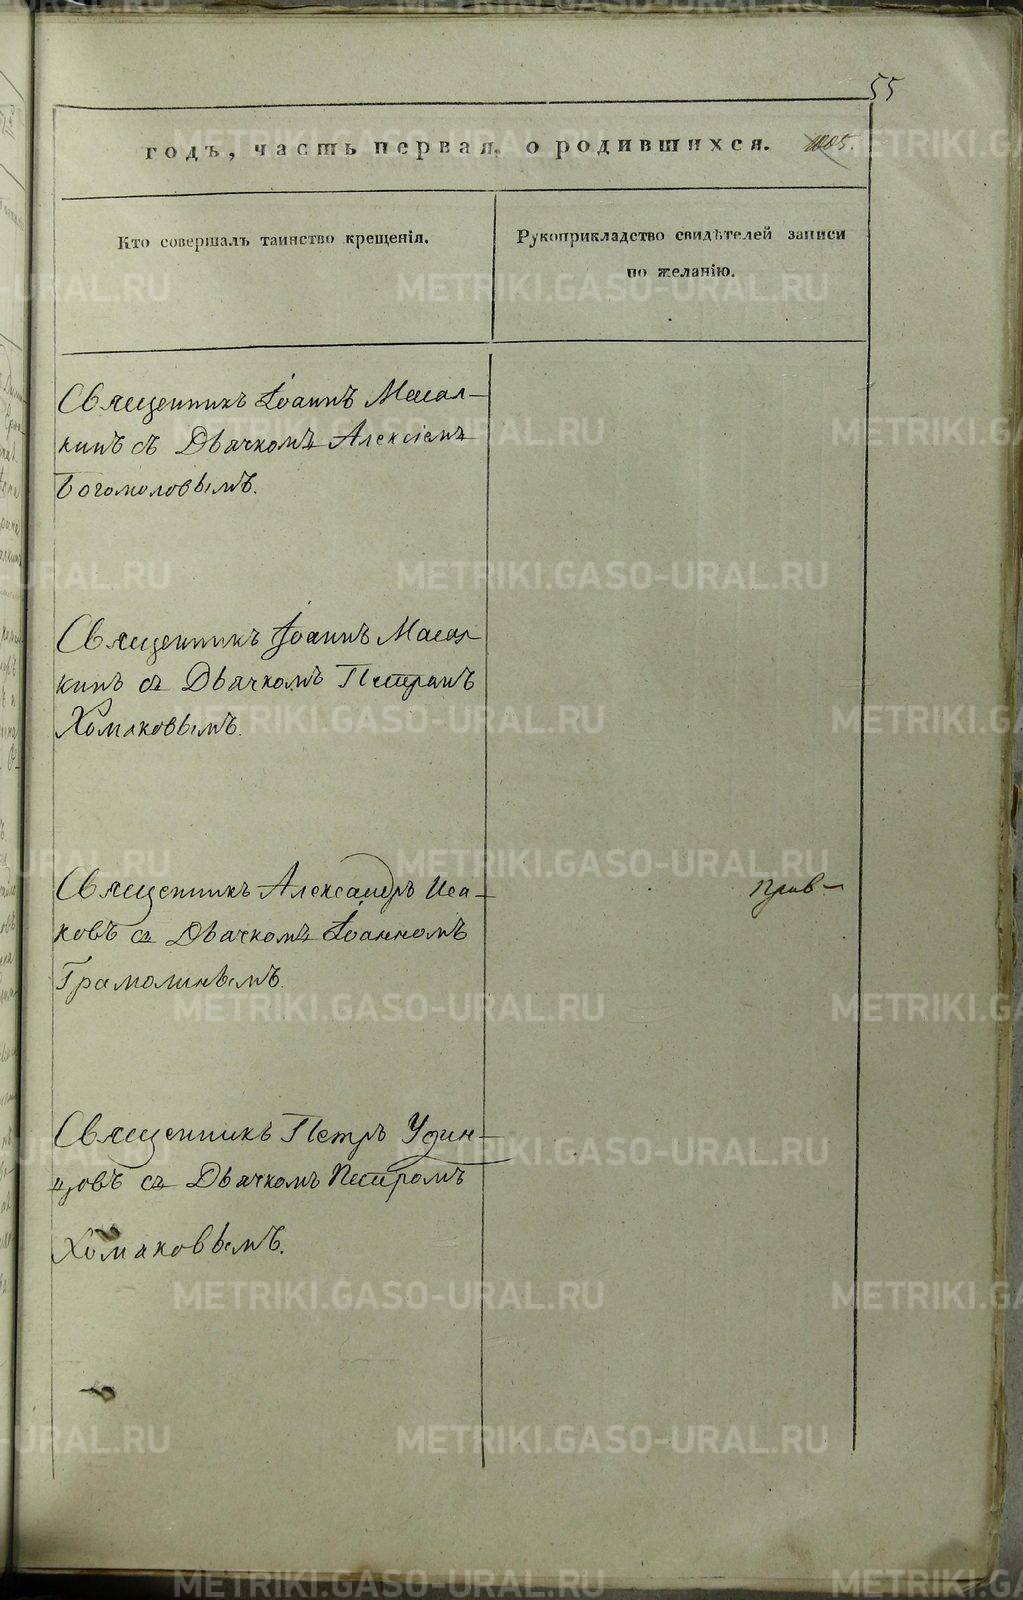 55
годъ, часть первая, о родившихся.
Кто совершалъ таинство крещенія.
Рукоприкладство свидѣтелей записи
по желанію.
Священникъ Іоаннъ Масал-
кинъ съ Дьячкомъ Алексіемъ
Богомоловымъ.
Священникъ Іоаннъ Масал-
кинъ съ Дьячкомъ Петромъ
Хомяковымъ.
Священникъ Александръ Иса-
ковъ съ Дьячкомъ Іоанномъ
Грамолинымъ.
Священникъ Петръ Удин-
цовъ съ Дьячкомъ Петромъ
Хомяковымъ.
METRIKI.GASO-URAL.RU